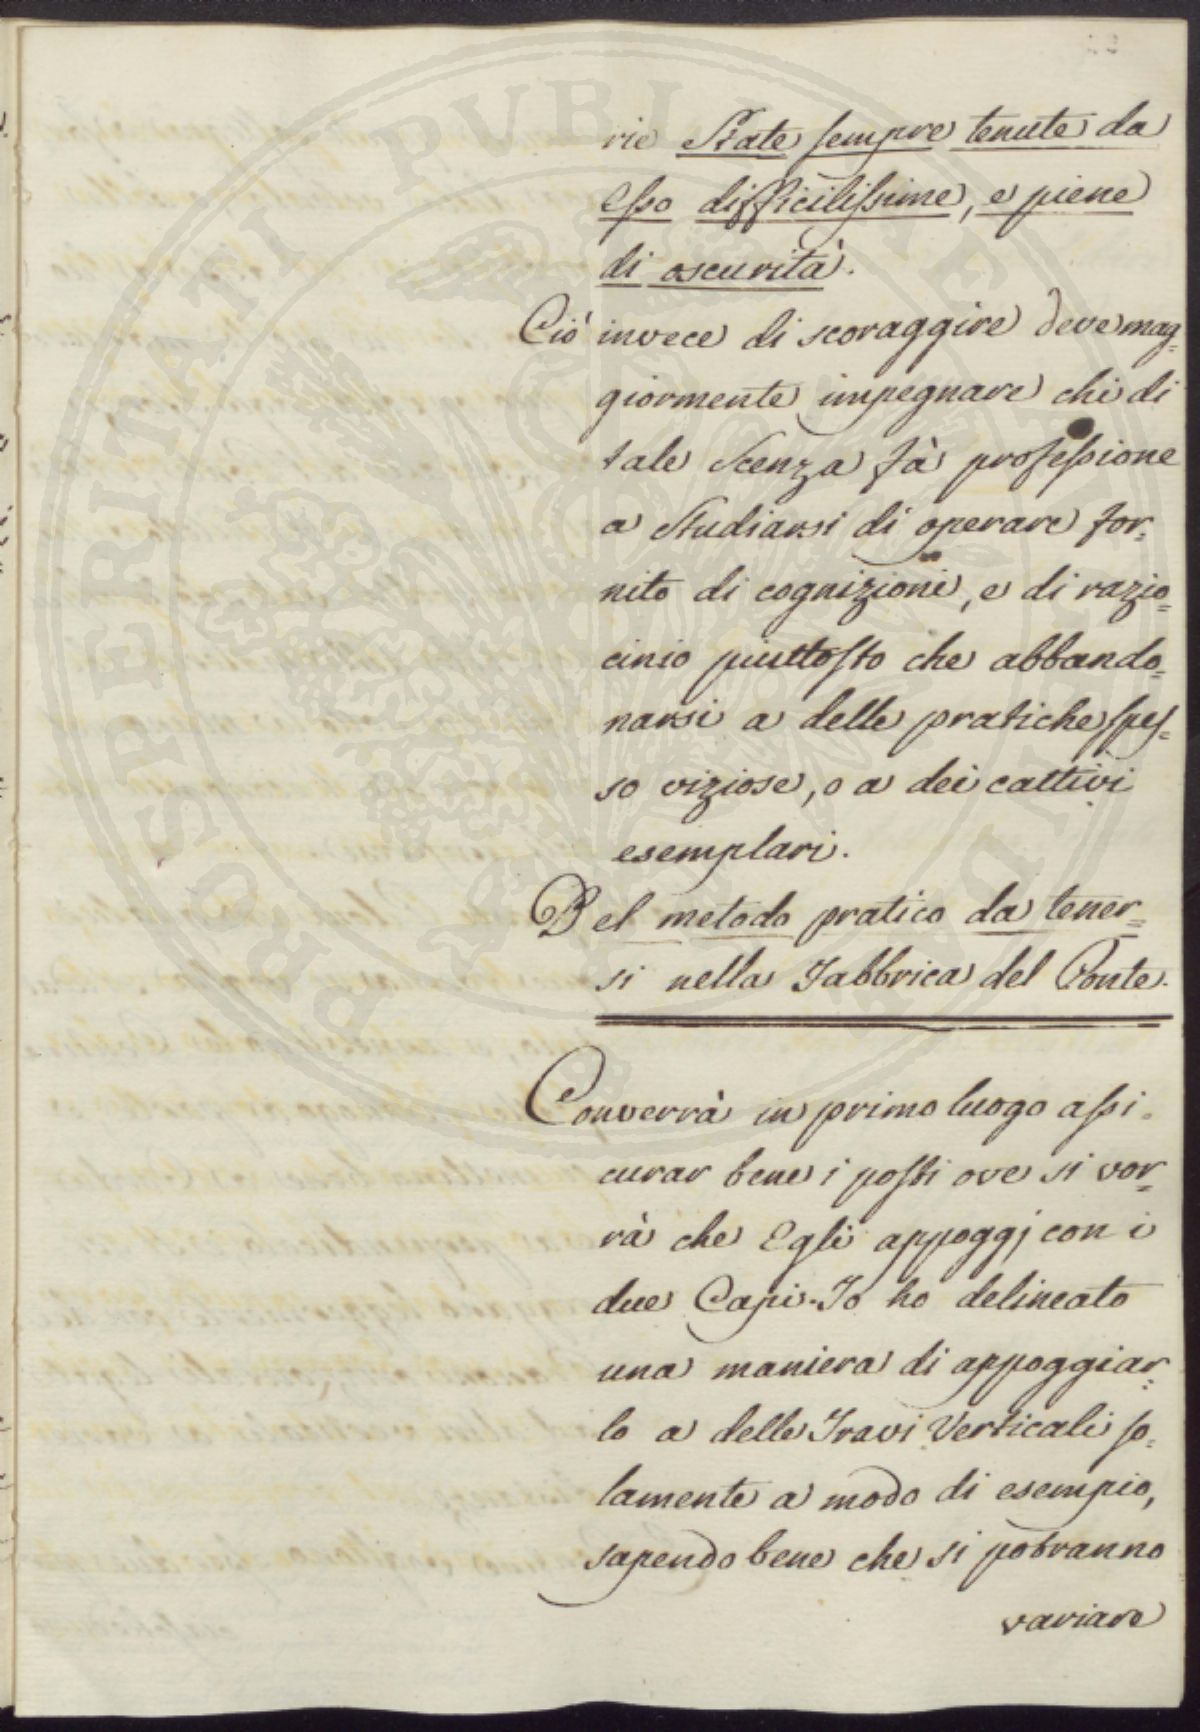 rie State sempre tenute da
esso difficilissime, e piene
di oscurità.
Ciò invece di scoraggire deve mag=
giormente impegnare chi di
tale Scenza fà professione
a Studiarsi di operare for=
nito di cognizioni, e di razio=
cinio piuttosto che abbando=
narsi a delle pratiche spes=
so viziose, o a dei cattivi
esemplari.
Del metodo pratico da tener=
si nella Fabbrica del Ponte.
Converrà in primo luogo assi=
curar bene i posti ove si vor=
rà che Egli appoggj con i
due Capi. Io ho delineato
una maniera di appoggiar=
lo a delle Travi Verticali so=
lamente a modo di esempio,
sapendo bene che si potranno
variare
PROSPERITATI PUBLICAE AU